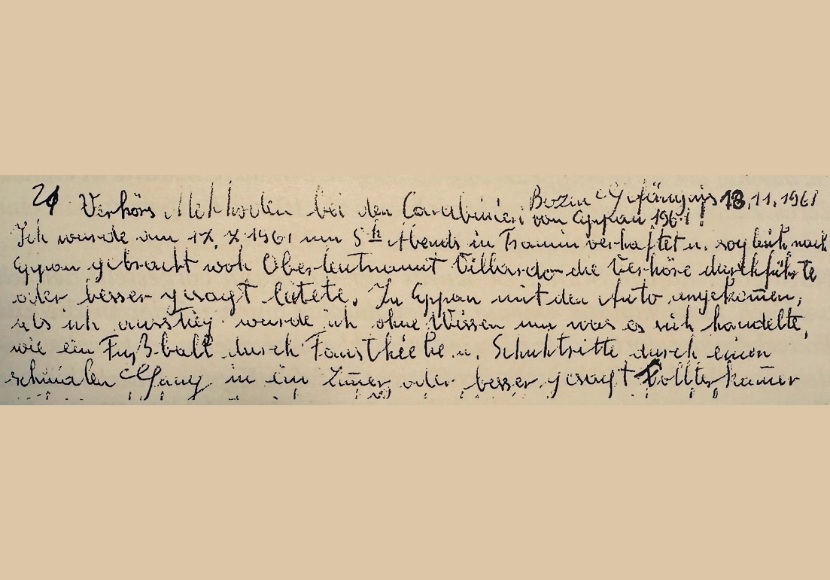 2) Bozen Gefängnis 18.11.1961
Verhörs Methoden bei den Carabinieri von Eppan 1961!
Ich wurde am 17.7.1961 um 5 h Abends in Tramin verhaftet u. sogleich nach
Eppan gebracht woh Oberleutnannt Villardo die Verhöre durchführte
oder besser gesagt leitete. In Eppan mit den Auto angekomen,
als ich ausstieg wurde ich ohne Wissen um was es sich handelte,
wie ein Fußball durch Fausthiebe u. Schuhtritte durch einen
schmalen Gang in ein Zimer, oder besser gesagt Follterkamer